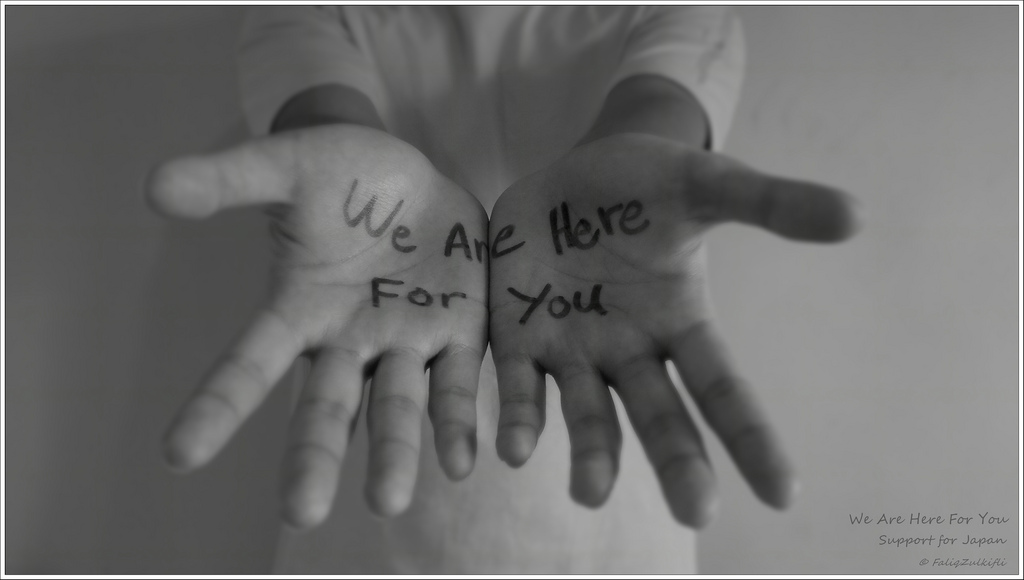 We Are Here
For You
We Are Here For You
Support for Japan
© FaliqZulkifli